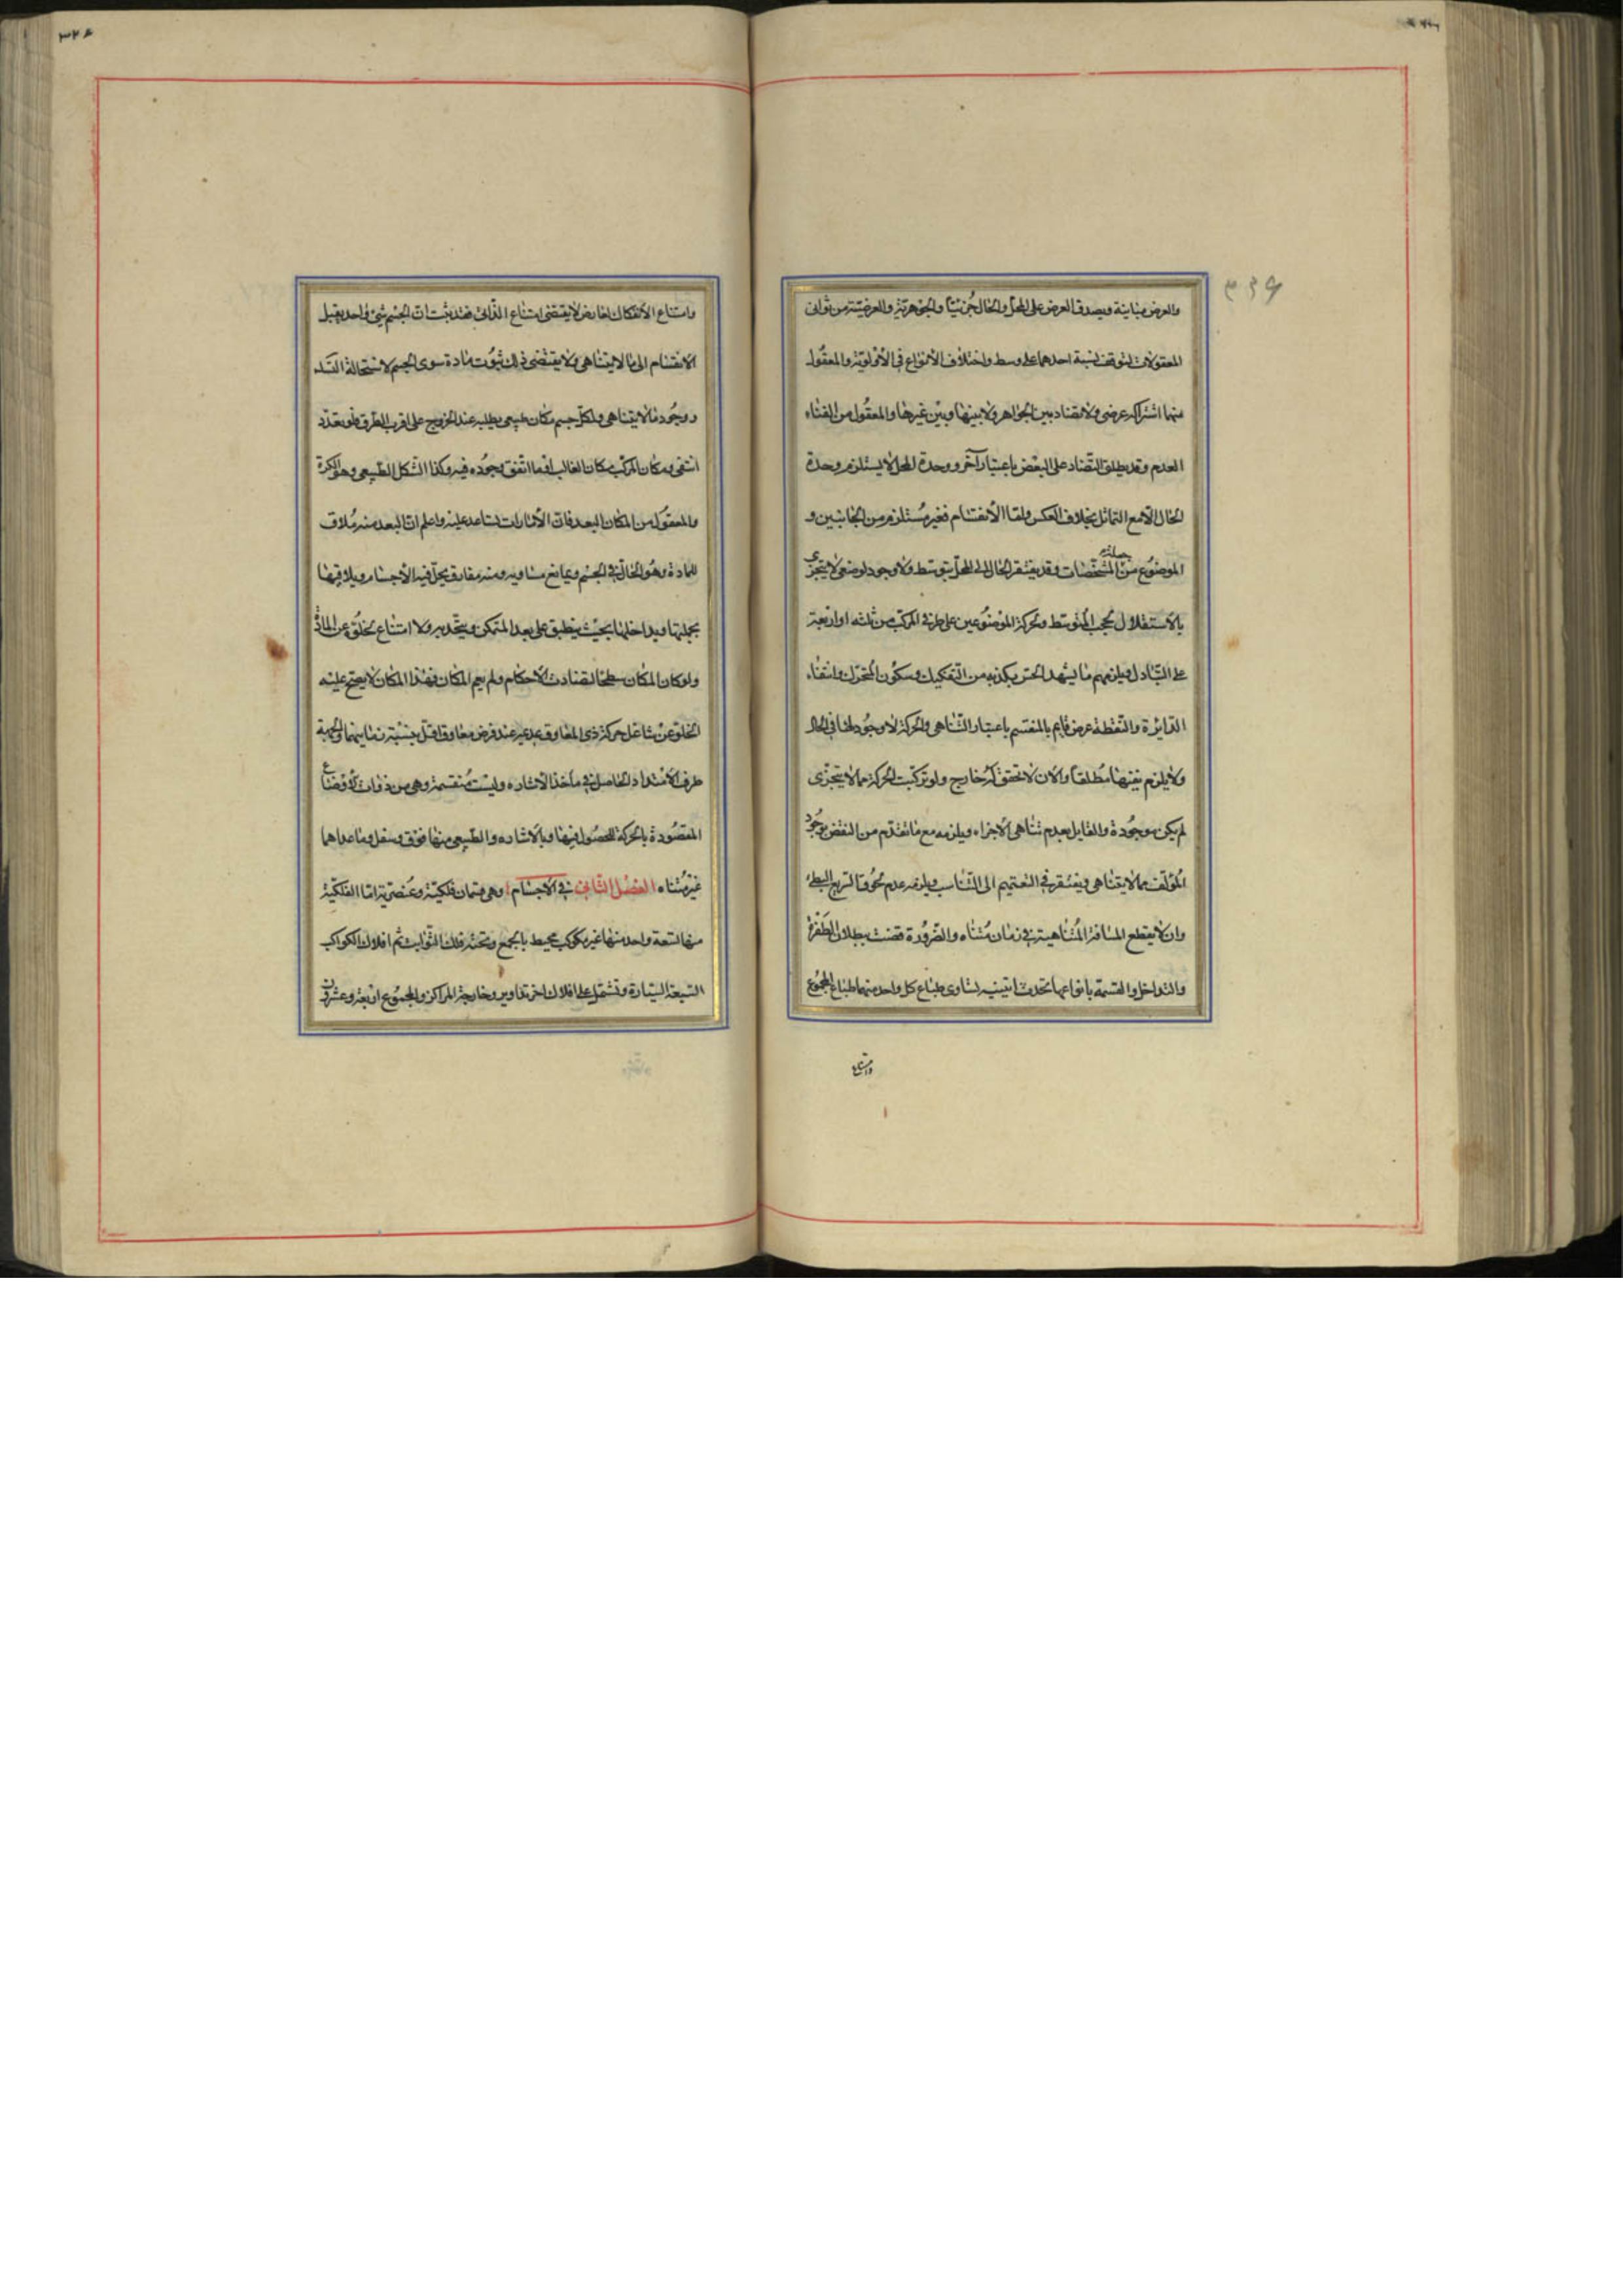 والعرض مباينة ويصدق العرض على المحل والحال جزئيا والجوهرية والعرضية من ثوانى
المعقولات لتوقف نسبة احدهما على وسط واختلاف الانواع فى الاولوية والمعقول
منهما اشتراكه عرضى ولا تضاد بين الجواهر ولا بينها وبين غيرها والمعقول من الفناء
العدم وقد يطلق التضاد على البعض باعتبار آخر ووحدة المحل لا يستلزم وحدة
الحال الا مع التماثل بخلاف العكس واما الانقسام فغير مستلزم من الجانبين و
الموضوع من جملة المشخصات وقد يفتقر الحال الى المحل بتوسط ولا وجود لوضعى لا يتجزى
بالاستقلال لحجب المتوسط وبحركة الموضوعين على طرفى المركب من ثلثه او اربعة
على التبادل ويلزمهم ما يشهد الحس بكذبه من التفكيك وسكون المتحرك وانتفاء
الدايرة والنقطة عرض قايم بالمنقسم باعتبار التناهى والحركة لا وجود لها فى الحال
ولا يلزم نفيها مطلقا والان لا تحقق له خارج ولو تركبت الحركة مما لا يتجزى
لم يكن موجودة والقايل بعدم تناهى الاجزاء ويلزمه مع ما تقدم من النقض بوجود
المؤلف مما لا يتناهى ويفتقر فى التعميم الى التناسب ويلزمه عدم لحوق السريع البطئ
وان لا يقطع المسافة المتناهية فى زمان متناه والضرورة قضت ببطلان الطفرة
والتداخل والقسمة بانواعها تحدث اثنينيه تساوى طباع كل واحد منهما طباع المجموع
وامتناع
وامتناع الانفكاك لعارض لا يقتضى امتناع الذاتى فقد ثبت ان الجسم شئ واحد يقبل
الانقسام الى ما لا يتناهى ولا يقتضى ذلك ثبوت مادة سوى الجسم لاستحالة التسلسل
ووجود ما لا يتناهى ولكل جسم مكان طبيعى يطلبه عند الخروج على اقرب الطرق فلو تعدد
انتفى ومكان المركب مكان الغالب او ما اتفق وجوده فيه وكذا الشكل الطبيعى وهو الكرة
والمعقول من المكان البعد فان الامارات تساعد عليه واعلم ان البعد منه ملاق
للمادة وهو الحال فى الجسم ويمانع مساويه ومنه مفارق يحل فيه الاجسام ويلاقيها
بجملتها ويداخلها بحيث ينطبق على بعد المتمكن ويتحد به ولا امتناع لخلوه عن المادة
ولو كان المكان سطحا لتضادت الاحكام ولم يعم المكان وهذا المكان لا يصح عليه
الخلو عن شاغل حركة ذى المعاوق عديمه عند فرض معاوق اقل بنسبة زمانيهما والجهة
طرف الامتداد الحاصل فى ماخذ الاشاره وليست منقسمة وهى من ذوات الاوضاع
المقصودة بالحركة للحصول فيها وبالاشاره والطبيعى منها فوق وسفل وما عداهما
غير متناه الفصل الثانى فى الاجسام وهى قسمان فلكية وعنصرية اما الفلكية
منها تسعة واحد منها غير مكوكب محيط بالجمع وتحته فلك الثوابت ثم افلاك الكواكب
السبعة السيارة وتشتمل على افلاك اخر تداوير وخارجة المراكز والمجموع اربعة وعشرون